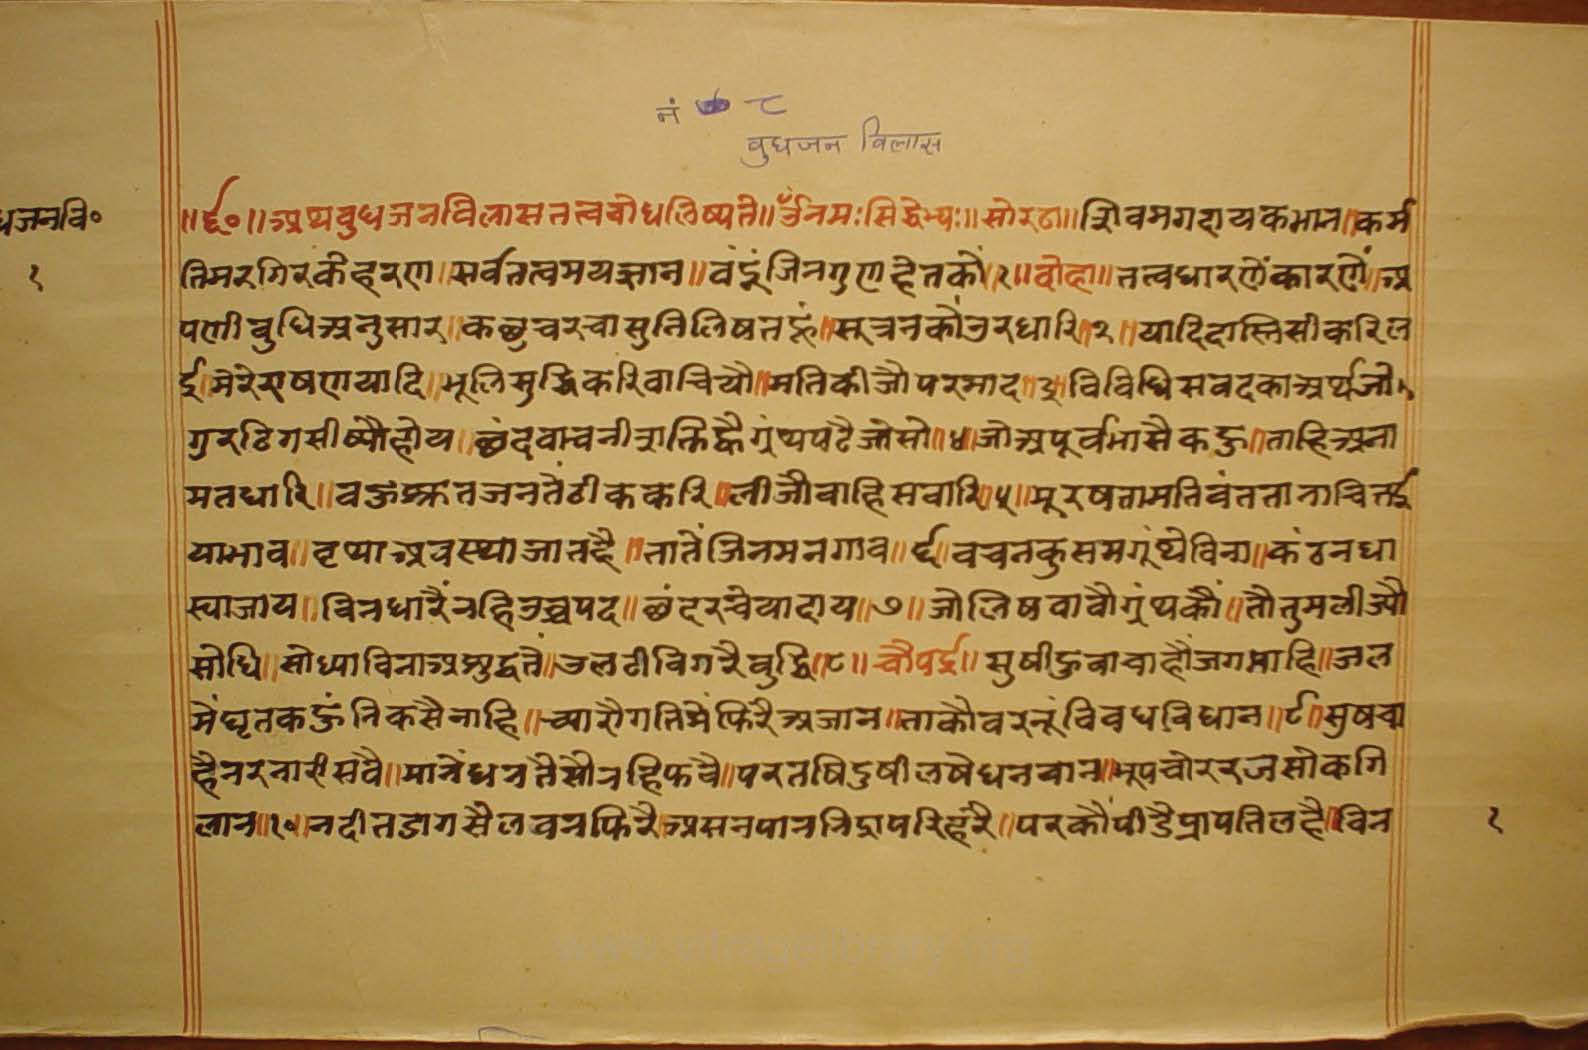 नं ८
वुधजन विलास
धजनवि०
१
॥र्द्द०॥अथवुधजनविलासतत्ववोधलिष्यते॥ॐनमःसिद्धेभ्यः॥सोरठा॥शिवमगदायकभान॥कर्म
तिमरगिरकेहरण॥सर्वतत्वमयज्ञान॥वंदूंजिनगुणहेतकौं॥१॥दोहा॥तत्वधारणेंकारणें॥अ
पणीवुधिअनुसार॥कछुचरचासुतिलिषतहूं॥सूत्रनकौंउरधारि॥२॥यादिदास्तिसीकरिल
ई॥मेरेराषणयादि॥भूलिसुद्धिकरिवाचियौ॥मतिकीजौपरमाद॥३॥विविधिसवदकाअर्थजो॥
गुरढिगसीष्यौहोय॥छंदवाचनीशक्तिह्वैग्रंथपढैजोसो॥४॥जोअपूर्वभासैकछु॥ताहिअना
मतधारि॥वऊश्रुतजनतैंठीककरि॥लीजौवाहिसवारि॥५॥मूरषतामतिवंततानाचितई
याभाव॥वृथाअवस्थाजातहै॥तातेंजिनमनगाव॥६॥वचनकुसमगूंथेविना॥कंठनधा
स्याजाय॥विनधारैंनहिउच्चपद॥छंदरचेयादाय॥७॥जोलिषवावौग्रंथकौं॥तौतुमलीज्यौ
सोधि॥सोध्याविनाअशुद्धतें॥उलटीविगरैवुद्धि॥८॥चौपई॥सुषीहुवाचाहौजगमाहि॥जल
मेंघृतकहूंनिकसैनाहि॥च्यारौगतिमेंफिरैअजान॥ताकौवरनूंविवधविधान॥९॥सुषचा
हैनरनारीसवै॥मानेंधनतैसौनहिफवै॥परतषिदुषीलषैधनवान॥भूपचोररजसोकगि
लान॥१०॥नदीतडागसैलवनफिरै॥असनपाननिद्रापरिहरै॥परकौंपीडैप्रापतिलहै॥विन
१